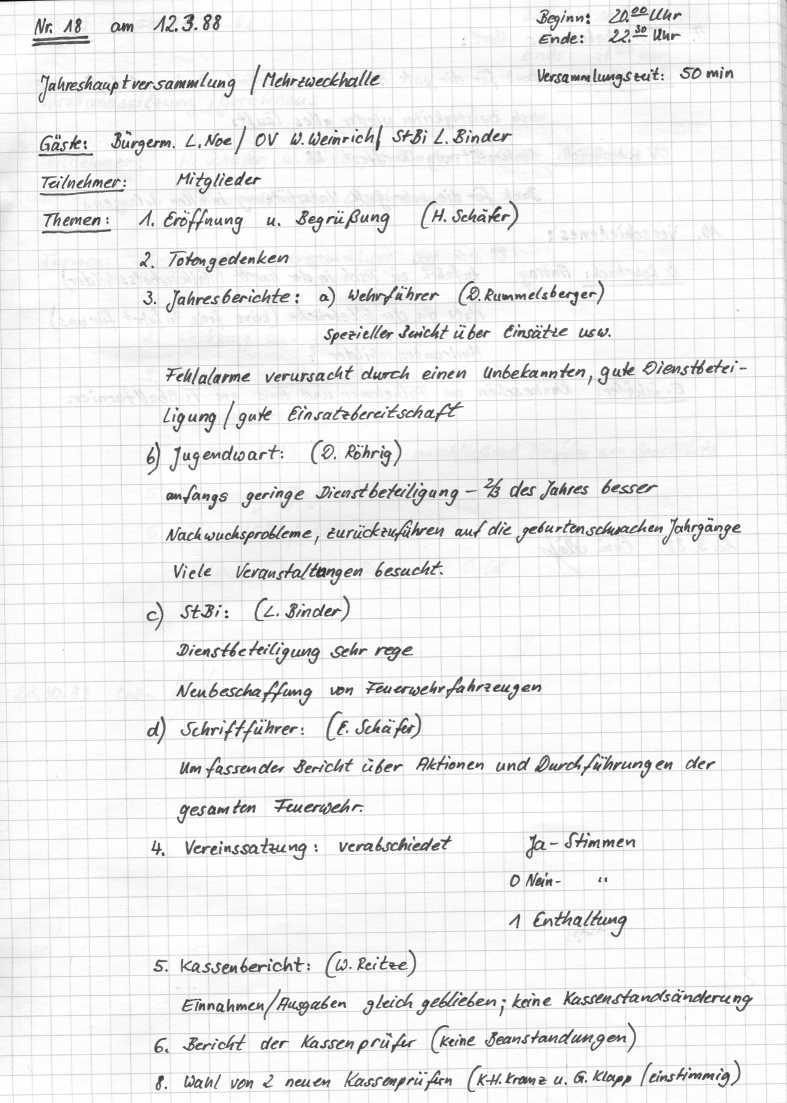 Nr. 18 am 12.3.88
Beginn: 20.00 Uhr
Ende: 22.30 Uhr
Jahreshauptversammlung / Mehrzweckhalle
Versammlungszeit: 50 min
Gäste: Bürgerm. L. Noe / OV W. Weinrich / StBi L. Binder
Teilnehmer: Mitglieder
Themen: 1. Eröffnung u. Begrüßung (H. Schäfer)
2. Totengedenken
3. Jahresberichte: a) Wehrführer (D. Rummelsberger)
Spezieller Bericht über Einsätze usw.
Fehlalarme verursacht durch einen Unbekannten, gute Dienstbetei-
ligung / gute Einsatzbereitschaft
b) Jugendwart: (D. Röhrig)
anfangs geringe Dienstbeteiligung – 2/3 des Jahres besser
Nachwuchsprobleme, zurückzuführen auf die geburtenschwachen Jahrgänge
Viele Veranstaltungen besucht.
c) StBi: (L. Binder)
Dienstbeteiligung sehr rege
Neubeschaffung von Feuerwehrfahrzeugen
d) Schriftführer: (E. Schäfer)
Umfassender Bericht über Aktionen und Durchführungen der
gesamten Feuerwehr.
4. Vereinssatzung: verabschiedet Ja-Stimmen
0 Nein- "
1 Enthaltung
5. Kassenbericht: (W. Reitze)
Einnahmen/Ausgaben gleich geblieben; keine Kassenstandsänderung
6. Bericht der Kassenprüfer (keine Beanstandungen)
8. Wahl von 2 neuen Kassenprüfern (K-H. Kranz u. G. Klapp / einstimmig)